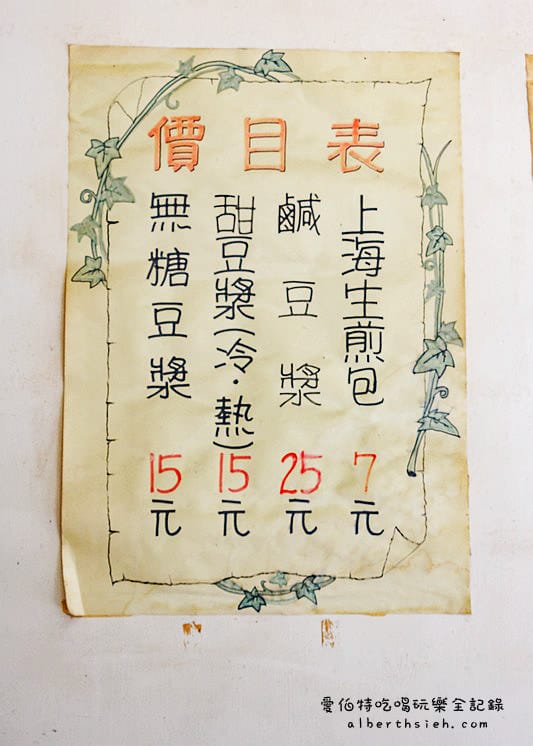 表目價
上海生煎包 7元
鹹豆漿 25元
甜豆漿(冷·熱) 15元
無糖豆漿 15元
愛伯特吃喝玩樂全記錄
alberthsieh.com